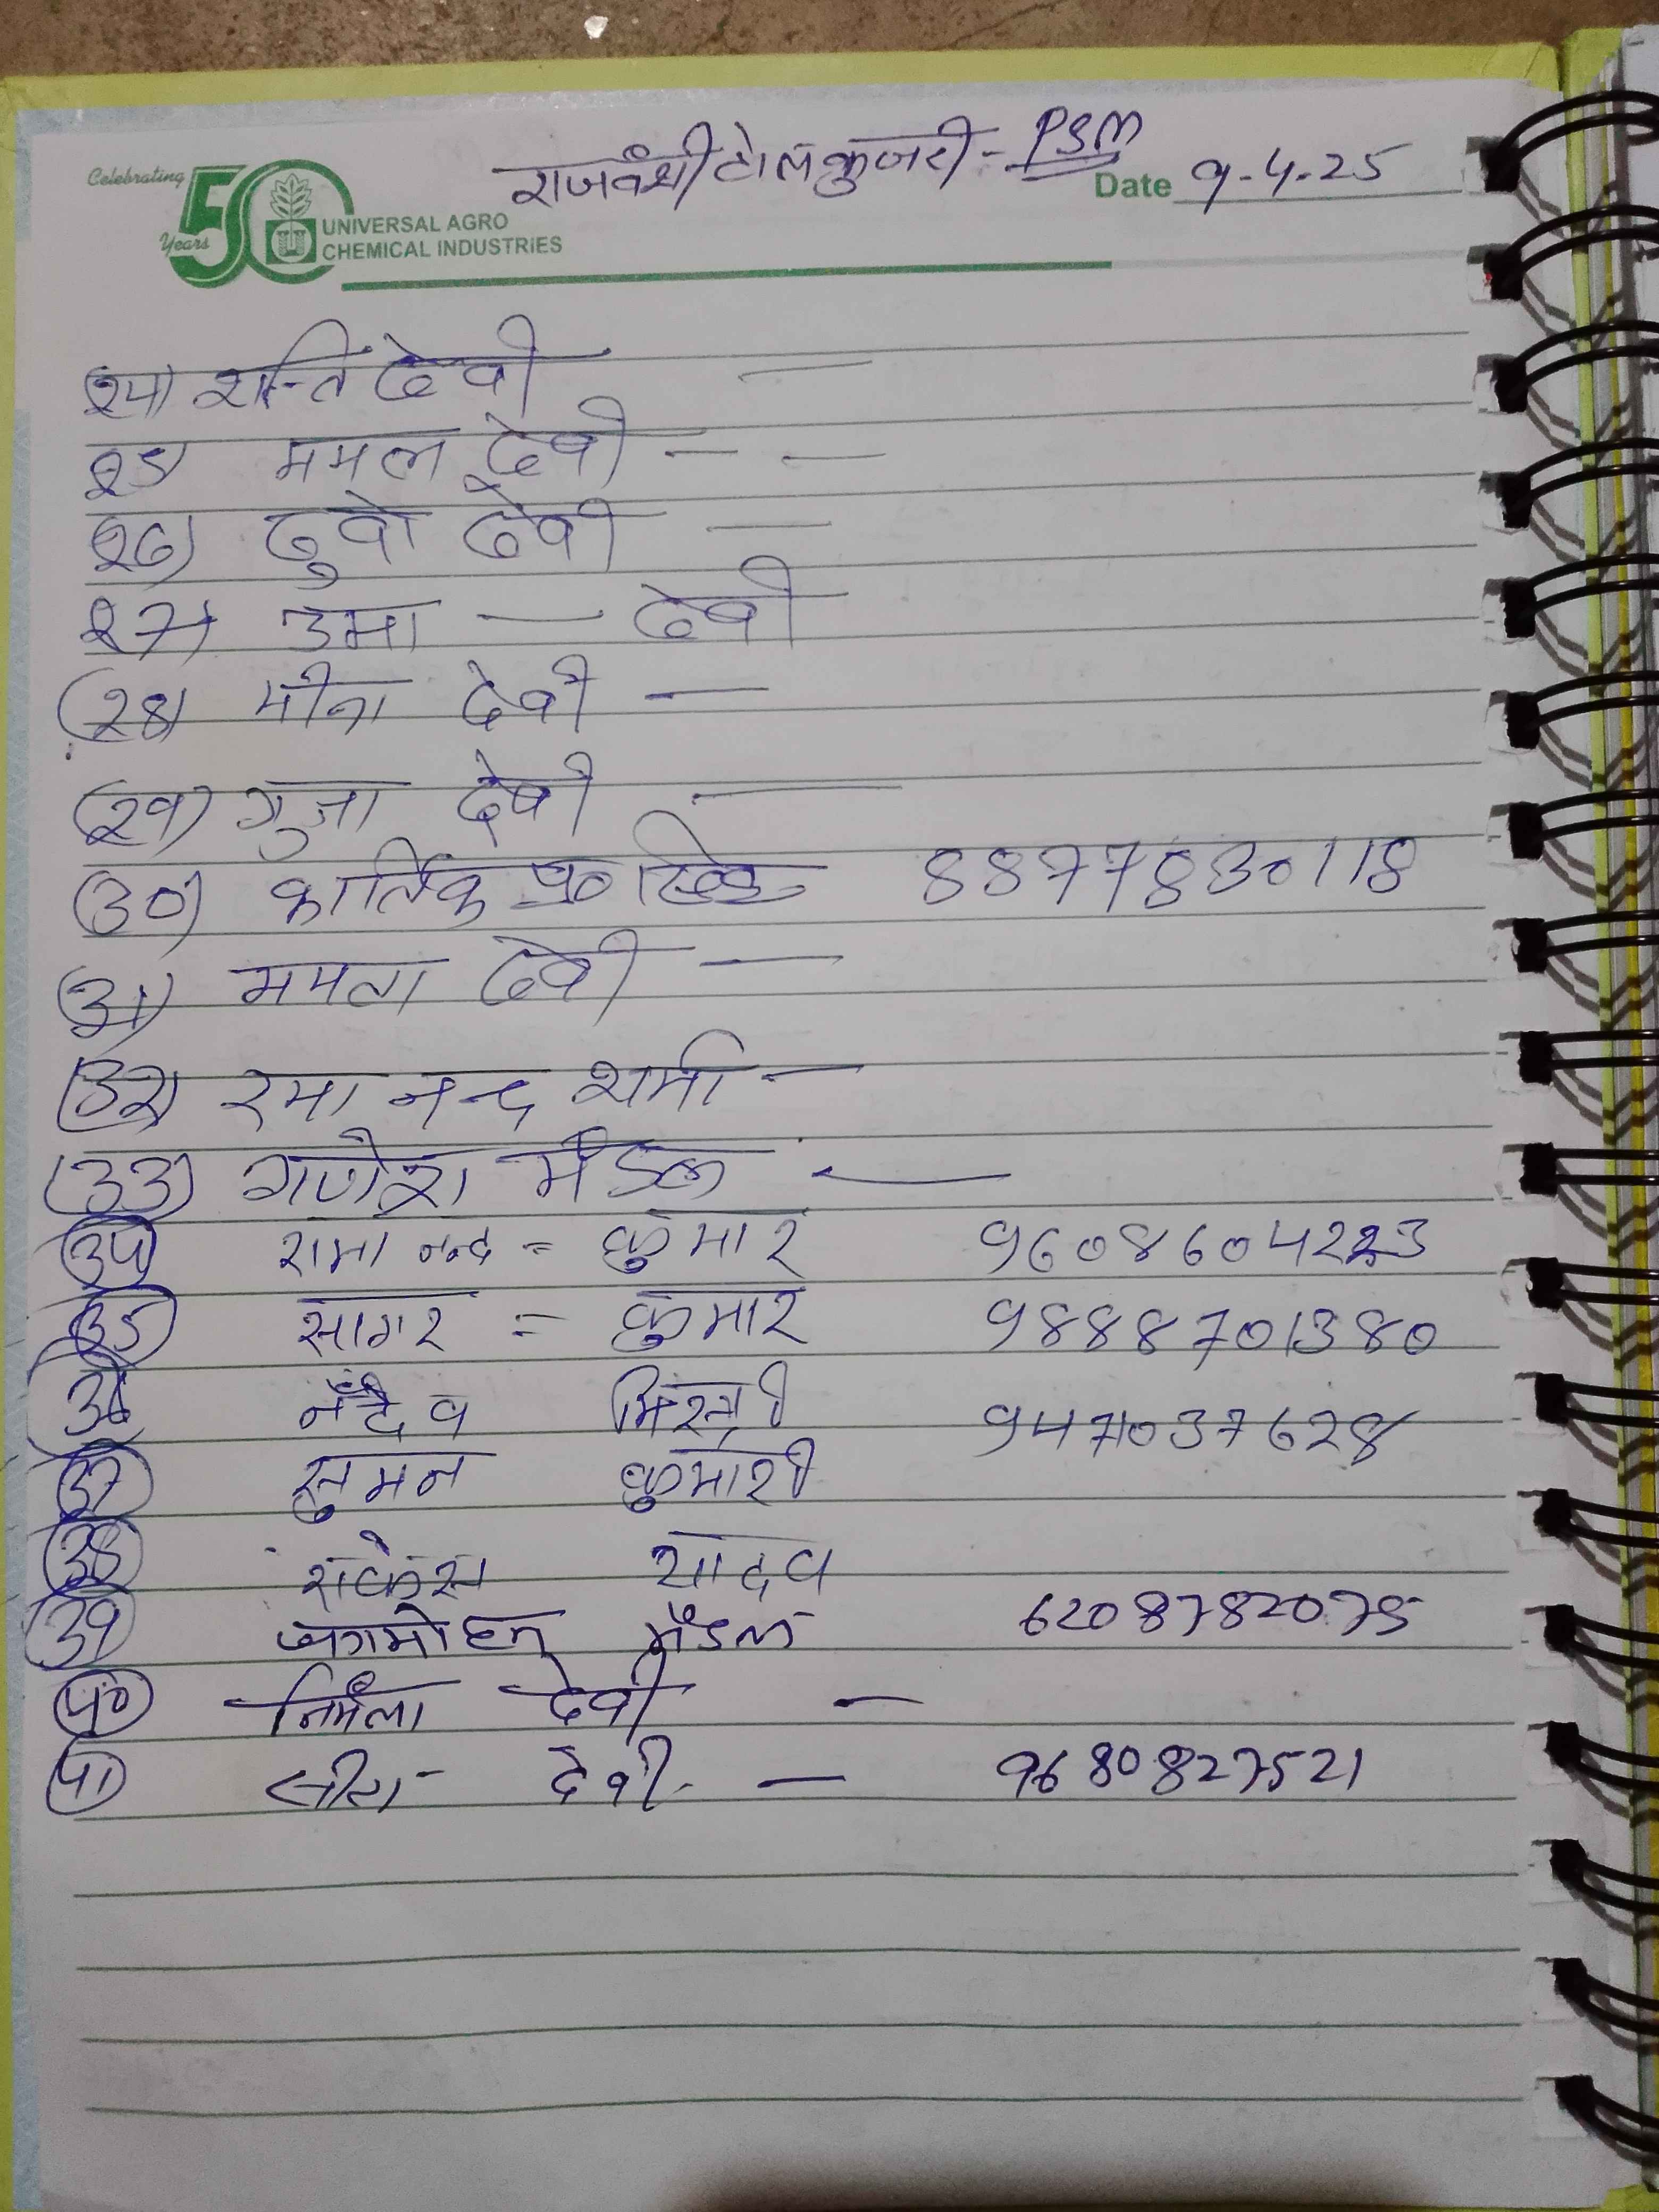 राजवंशी टोल कुजरी - PSM
Celebrating 50 Years
UNIVERSAL AGRO CHEMICAL INDUSTRIES
Date 9.4.25
२४) शन्ति देवी —
२5) ममल देवी — —
२6) ढुवो देवी —
२7) उमा — देवी
(२8) मीना देवी —
(२९) गुजा देवी —
(30) कार्तिक प्र० सिंह 8877830118
(31) ममता देवी —
(3२) रमा नन्द शर्मा —
(33) गणेश मंडल —
3४ रामा नन्द = कुमार 9608604223
35 सागर = कुमार 9888701380
36 नंददेव मिस्त्री 9471037628
37 सुमन कुमारी
38 राकेस यादव
39 जगमोहन मंडल 6208782075
४० निर्मला देवी —
४1 सीता देवी — 9680827521